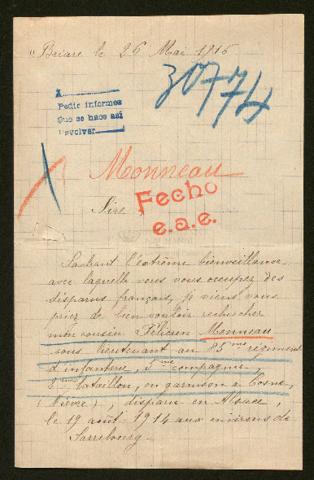 Briare le 26 Mai 1916
30774
Pedir informes
Que se hace así
Devolver
Monneau
Fecho
e.a.e.
Sire
Sachant l'extrême bienveillance
avec laquelle vous vous occupez des
disparus français, je viens vous
prier de bien vouloir rechercher
mon cousin Félicien Monneau
sous lieutenant au 85me régiment
d'infanterie, 5me compagnie,
2me bataillon, en garnison à Cosne,
(Nièvre), disparu en Alsace,
le 19 août 1914 aux environs de
Sarrebourg.